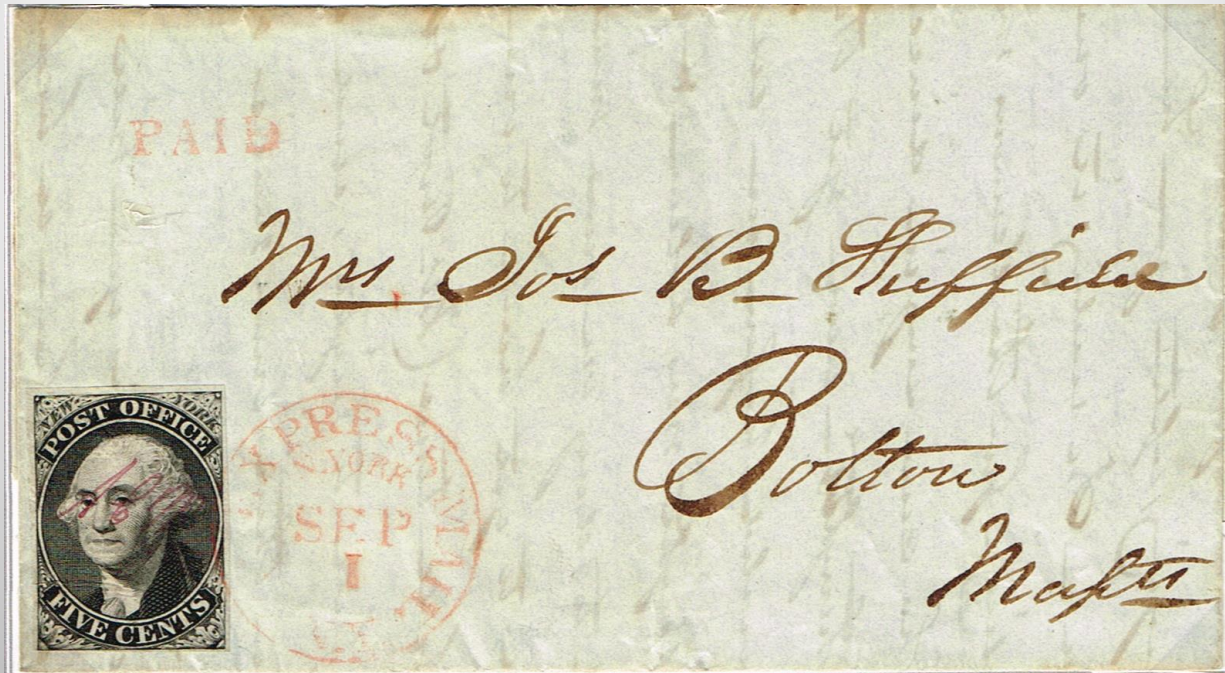 PAID
Mrs Jos B Sheffield
Bolton
Massts
NEW YORK
POST OFFICE
FIVE CENTS
EXPRESS MAIL
N. YORK
SEP
1
N.Y.